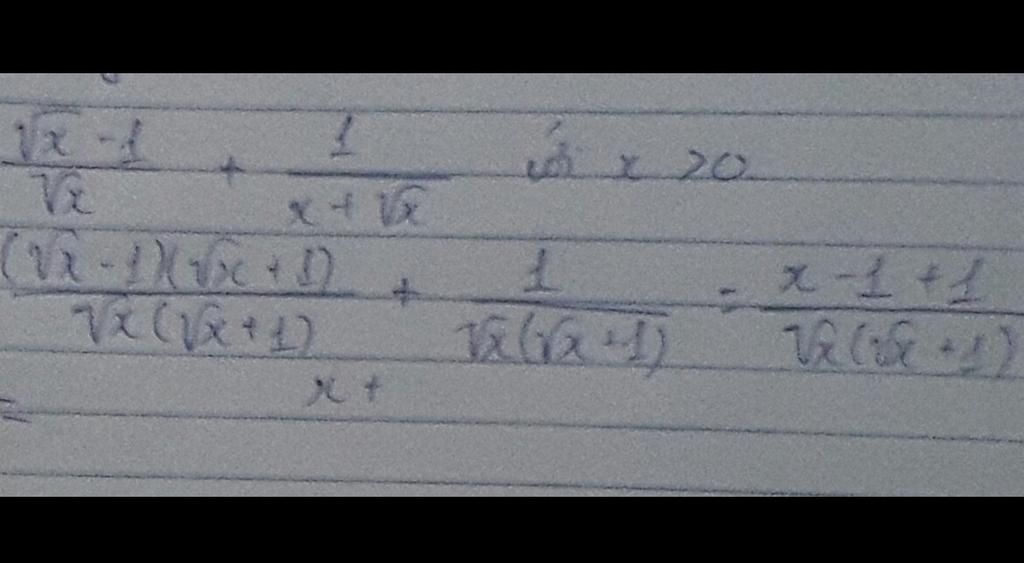 (√x - 1)/√x + 1/(x + √x) với x > 0
((√x - 1)(√x + 1))/(√x(√x + 1)) + 1/(√x(√x + 1)) = (x - 1 + 1)/(√x(√x + 1))
= x +